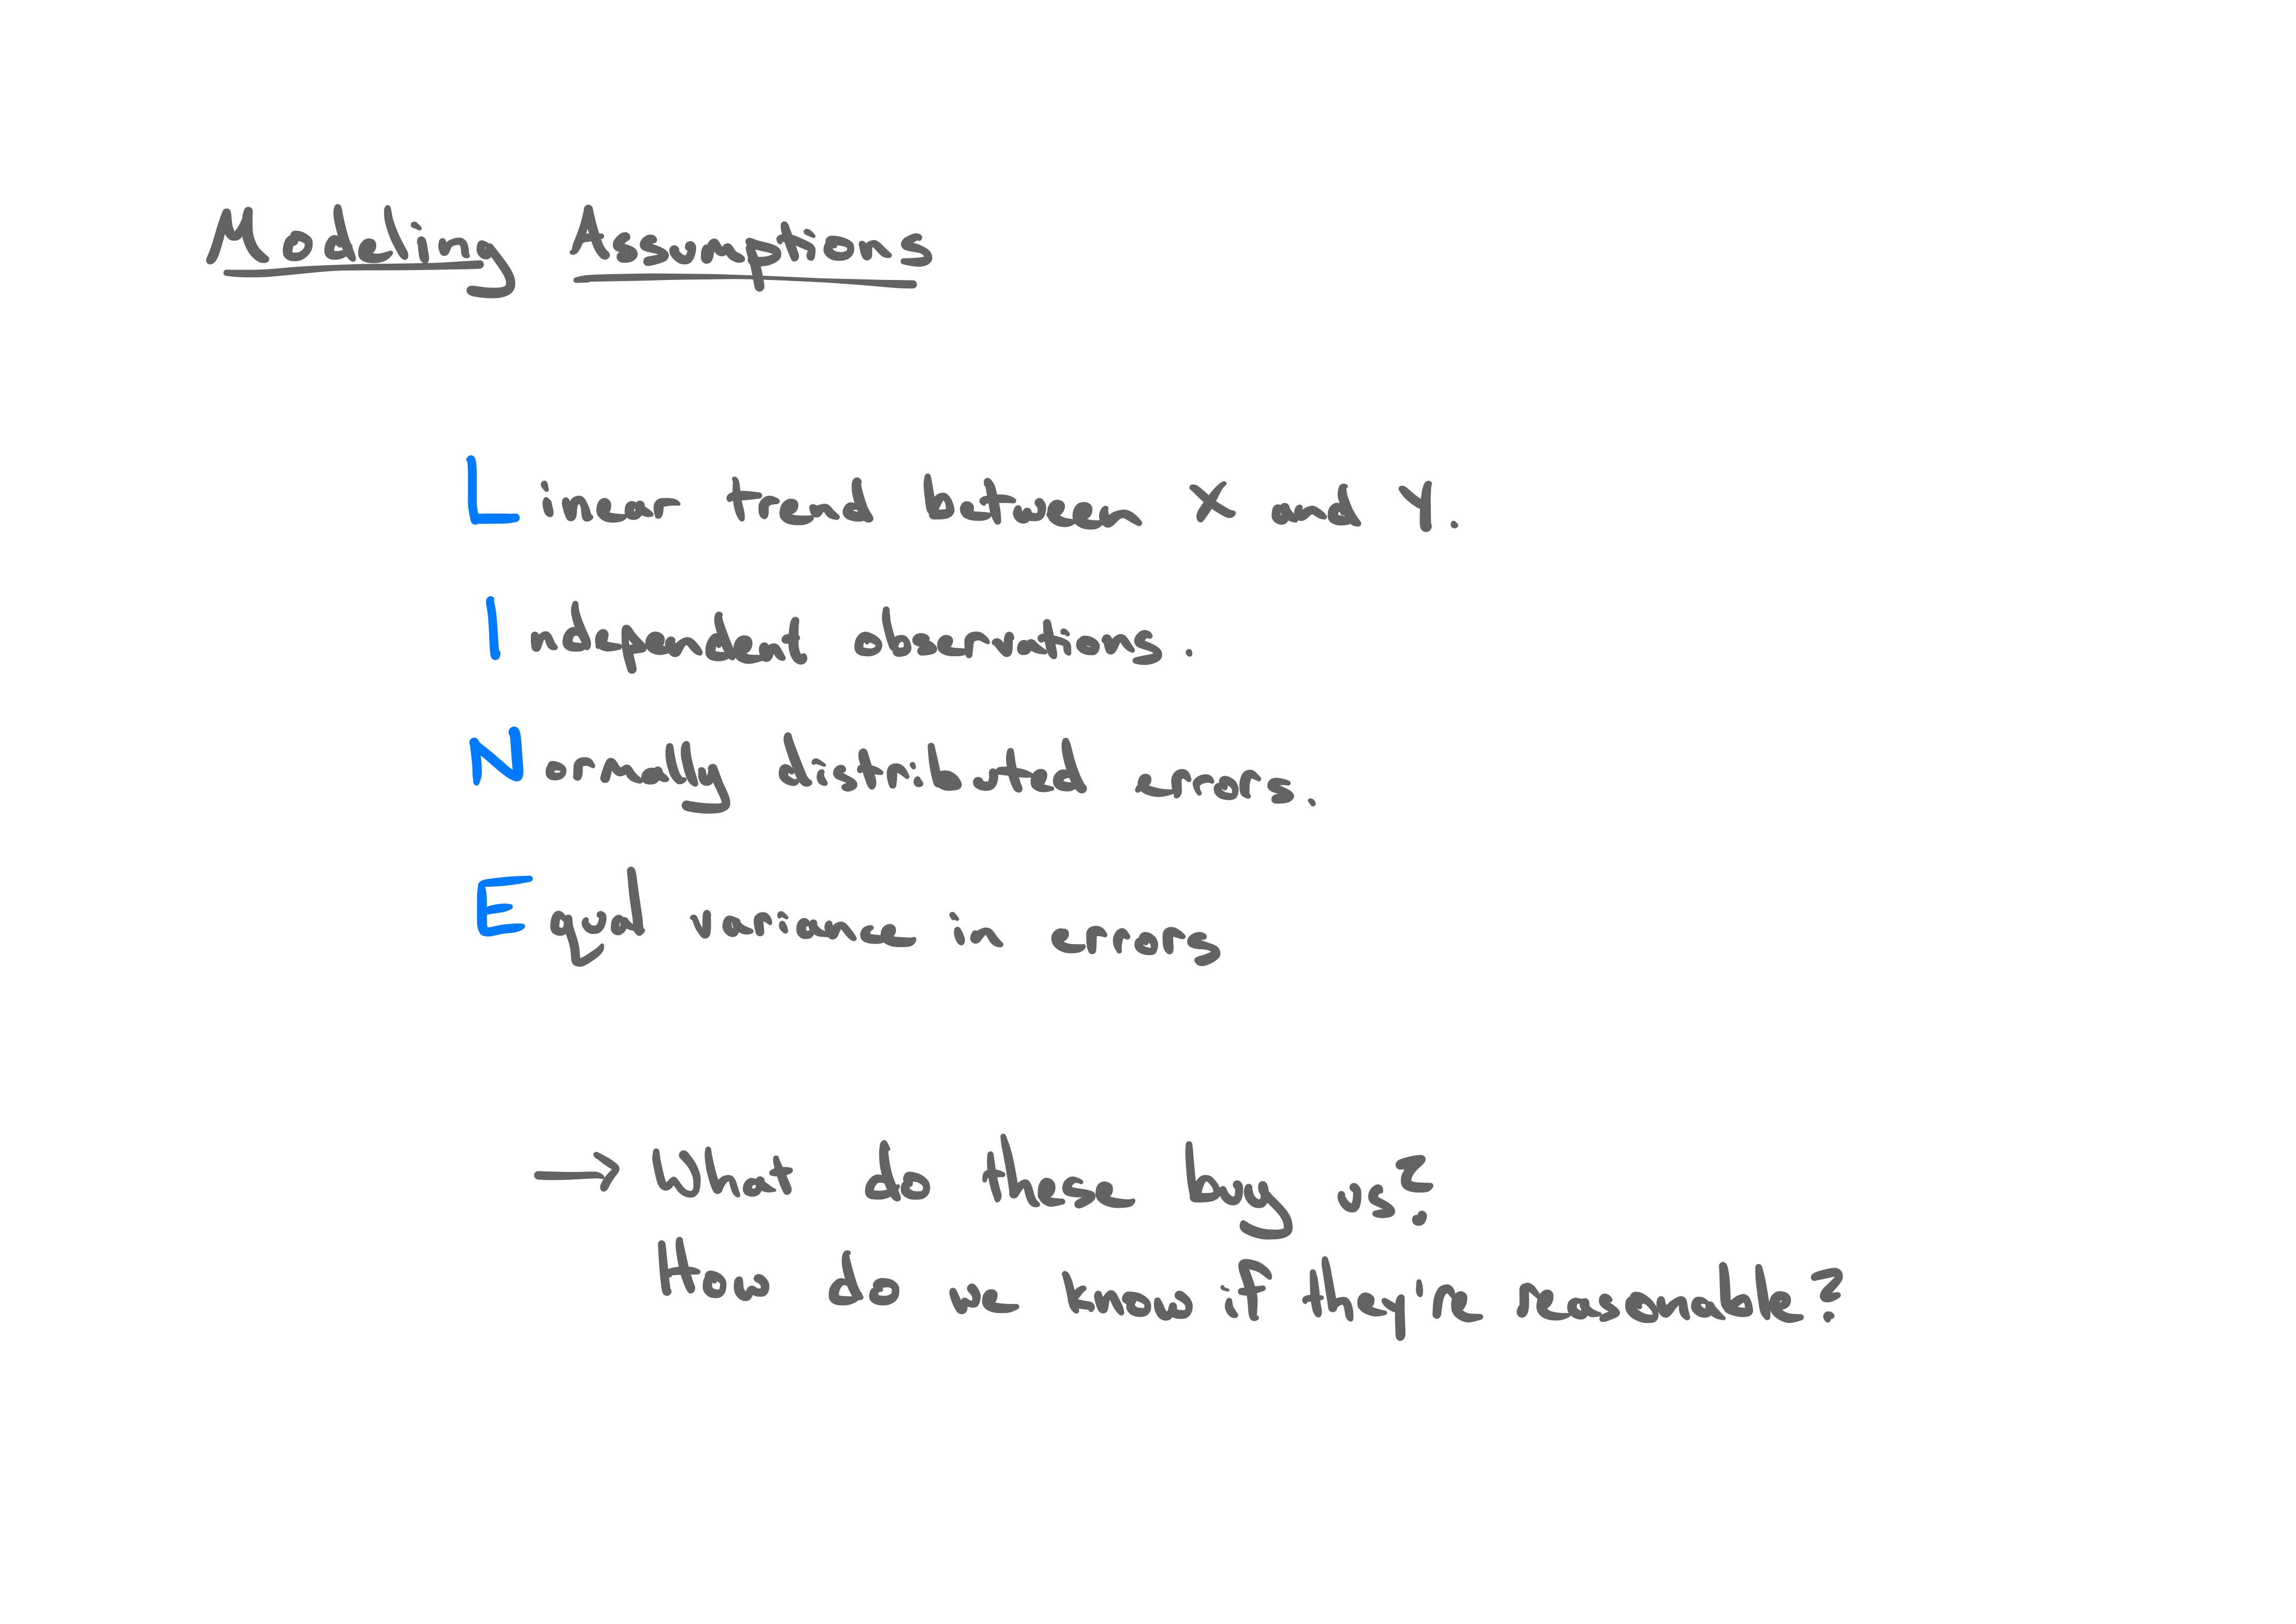 Modeling Assumptions
Linear trend between X and Y.
Independent observations.
Normally distributed errors.
Equal variance in errors
→ What do these buy us?
How do we know if they're reasonable?